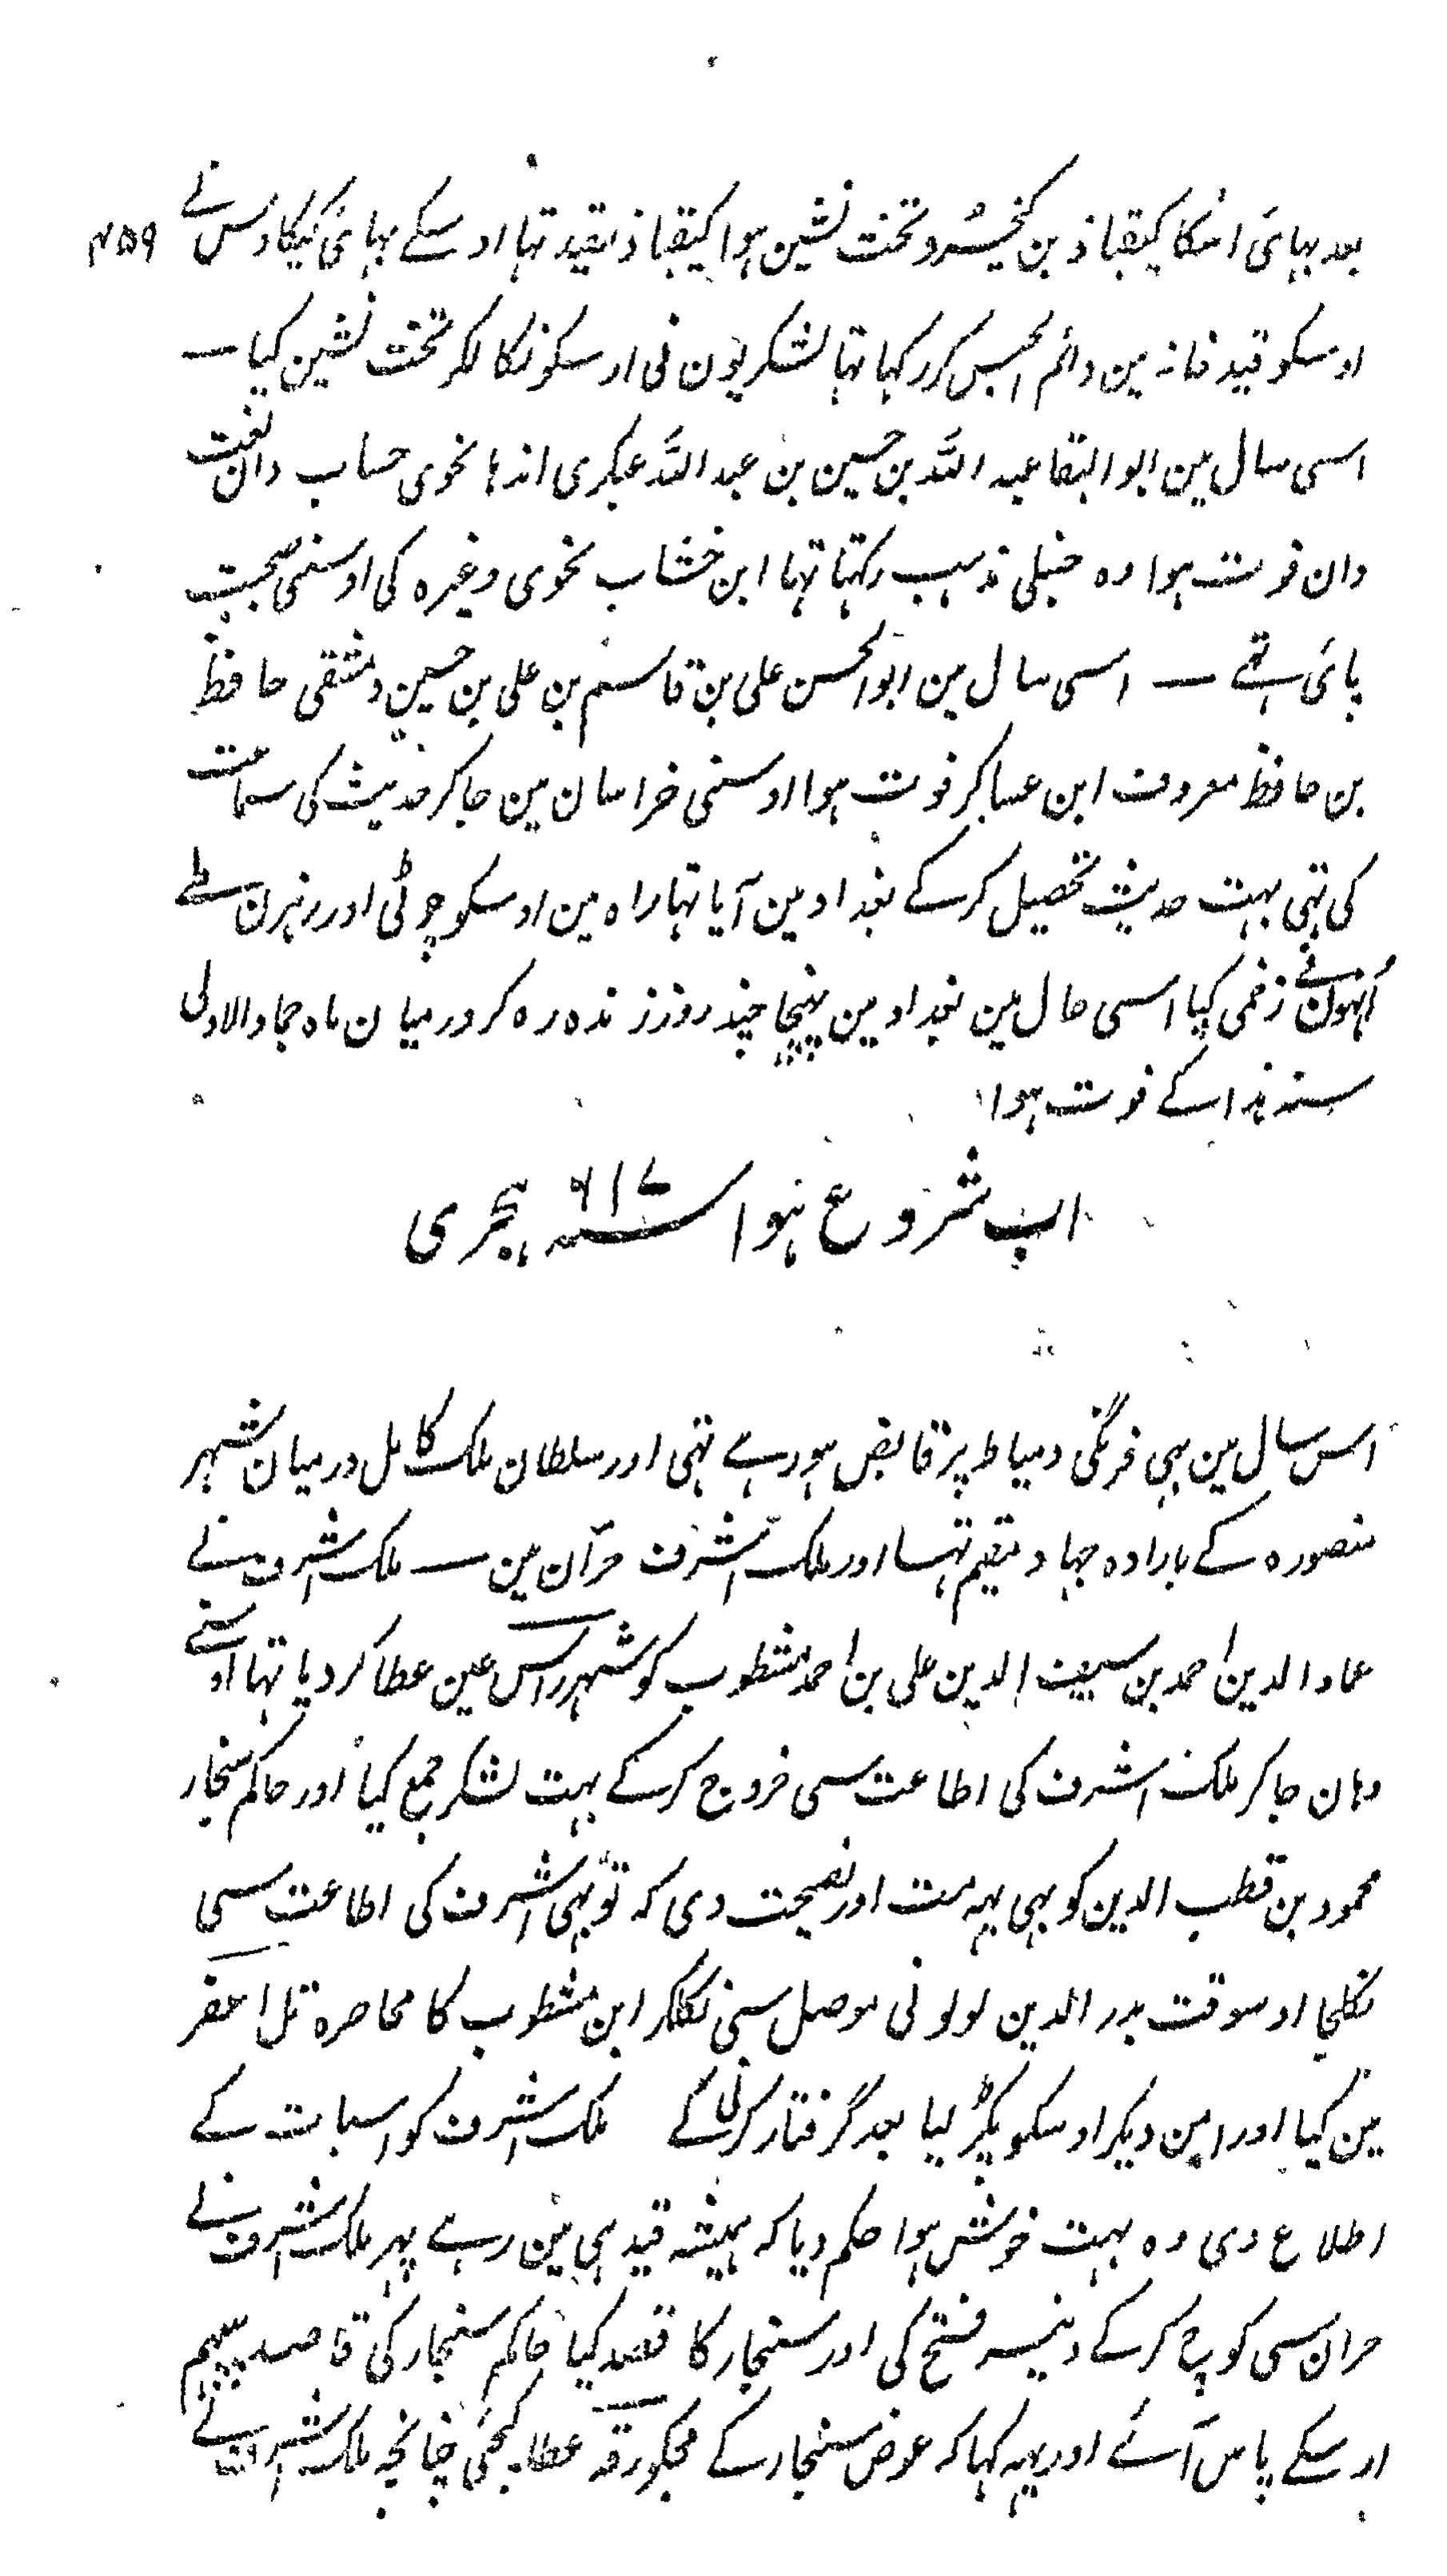 بعد بہائی اسکا کیقباذ بن کیخسرو تخت نشین ہوا کیقباذ بقید تہا اوسکے بہائی کیکاوس نے ۴۵۹
اوسکو قید خانہ مین دائم الحبس کر رکہا تہا لشکریون نی اوسکو نکالکر تخت نشین کیا —
اسی سال مین ابو البقا عبد اللہ بن حسین بن عبد اللہ عکبری اندہا نحوی حساب دان لغت
دان فوت ہوا وہ حنبلی مذہب رکہتا تہا ابن خشاب نحوی وغیرہ کی اوسنی صحبت
پائی تہے — اسی سال مین ابو الحسن علی بن قاسم بن علی بن حسین دمشقی حافظ
بن حافظ معروف ابن عساکر فوت ہوا اوسنی خراسان مین جاکر حدیث کی سماعت
کی تہی بہت حدیث تحصیل کرکے بغداد مین آیا تہا راہ مین اوسکو چوٹی اور رہزن ملے
اُنہون نے زخمی کیا اسی حال مین بغداد مین پہنچا چند روز زندہ رہ کر درمیان ماہ جماد الاولی
سنہ ہذا کے فوت ہوا
اب شروع ہوا سنہ ۶۱۷ ہجری
اس سال مین بہی فرنگی دمیاط پر قابض ہو رہے تہی اور سلطان ملک کامل درمیان شہر
منصورہ کے بارادہ جہاد مقیم تہا اور ملک اشرف حرّان مین — ملک اشرف نے
عماد الدین احمد بن سیف الدین علی بن احمد مشطوب کو شہر راس عین عطا کر دیا تہا اوسنے
وہان جاکر ملک اشرف کی اطاعت سی خروج کرکے بہت لشکر جمع کیا اور حاکم سنجار
محمود بن قطب الدین کو بہی یہہ مت اور نصیحت دی کہ تو بہی اشرف کی اطاعت سی
نکلجا اوسوقت بدر الدین لولو نی موصل سی نکلکر ابن مشطوب کا محاصرہ تل اعفر
مین کیا اور امن دیکر اوسکو پکڑ لیا بعد گرفتار کرنی کے ملک اشرف کو اسبات کے
اطلاع دی وہ بہت خوش ہوا حکم دیا کہ ہمیشہ قید ہی مین رہے پہر ملک اشرف نے
حران سی کوچ کرکے دنیسر فتح کی اور سنجار کا قصد کیا حاکم سنجار کی قاصد پیہم
اوسکے پاس آئے اور یہہ کہا کہ عوض سنجار کے مجکو رقہ عطا کیجئی چنانچہ ملک اشرف نے